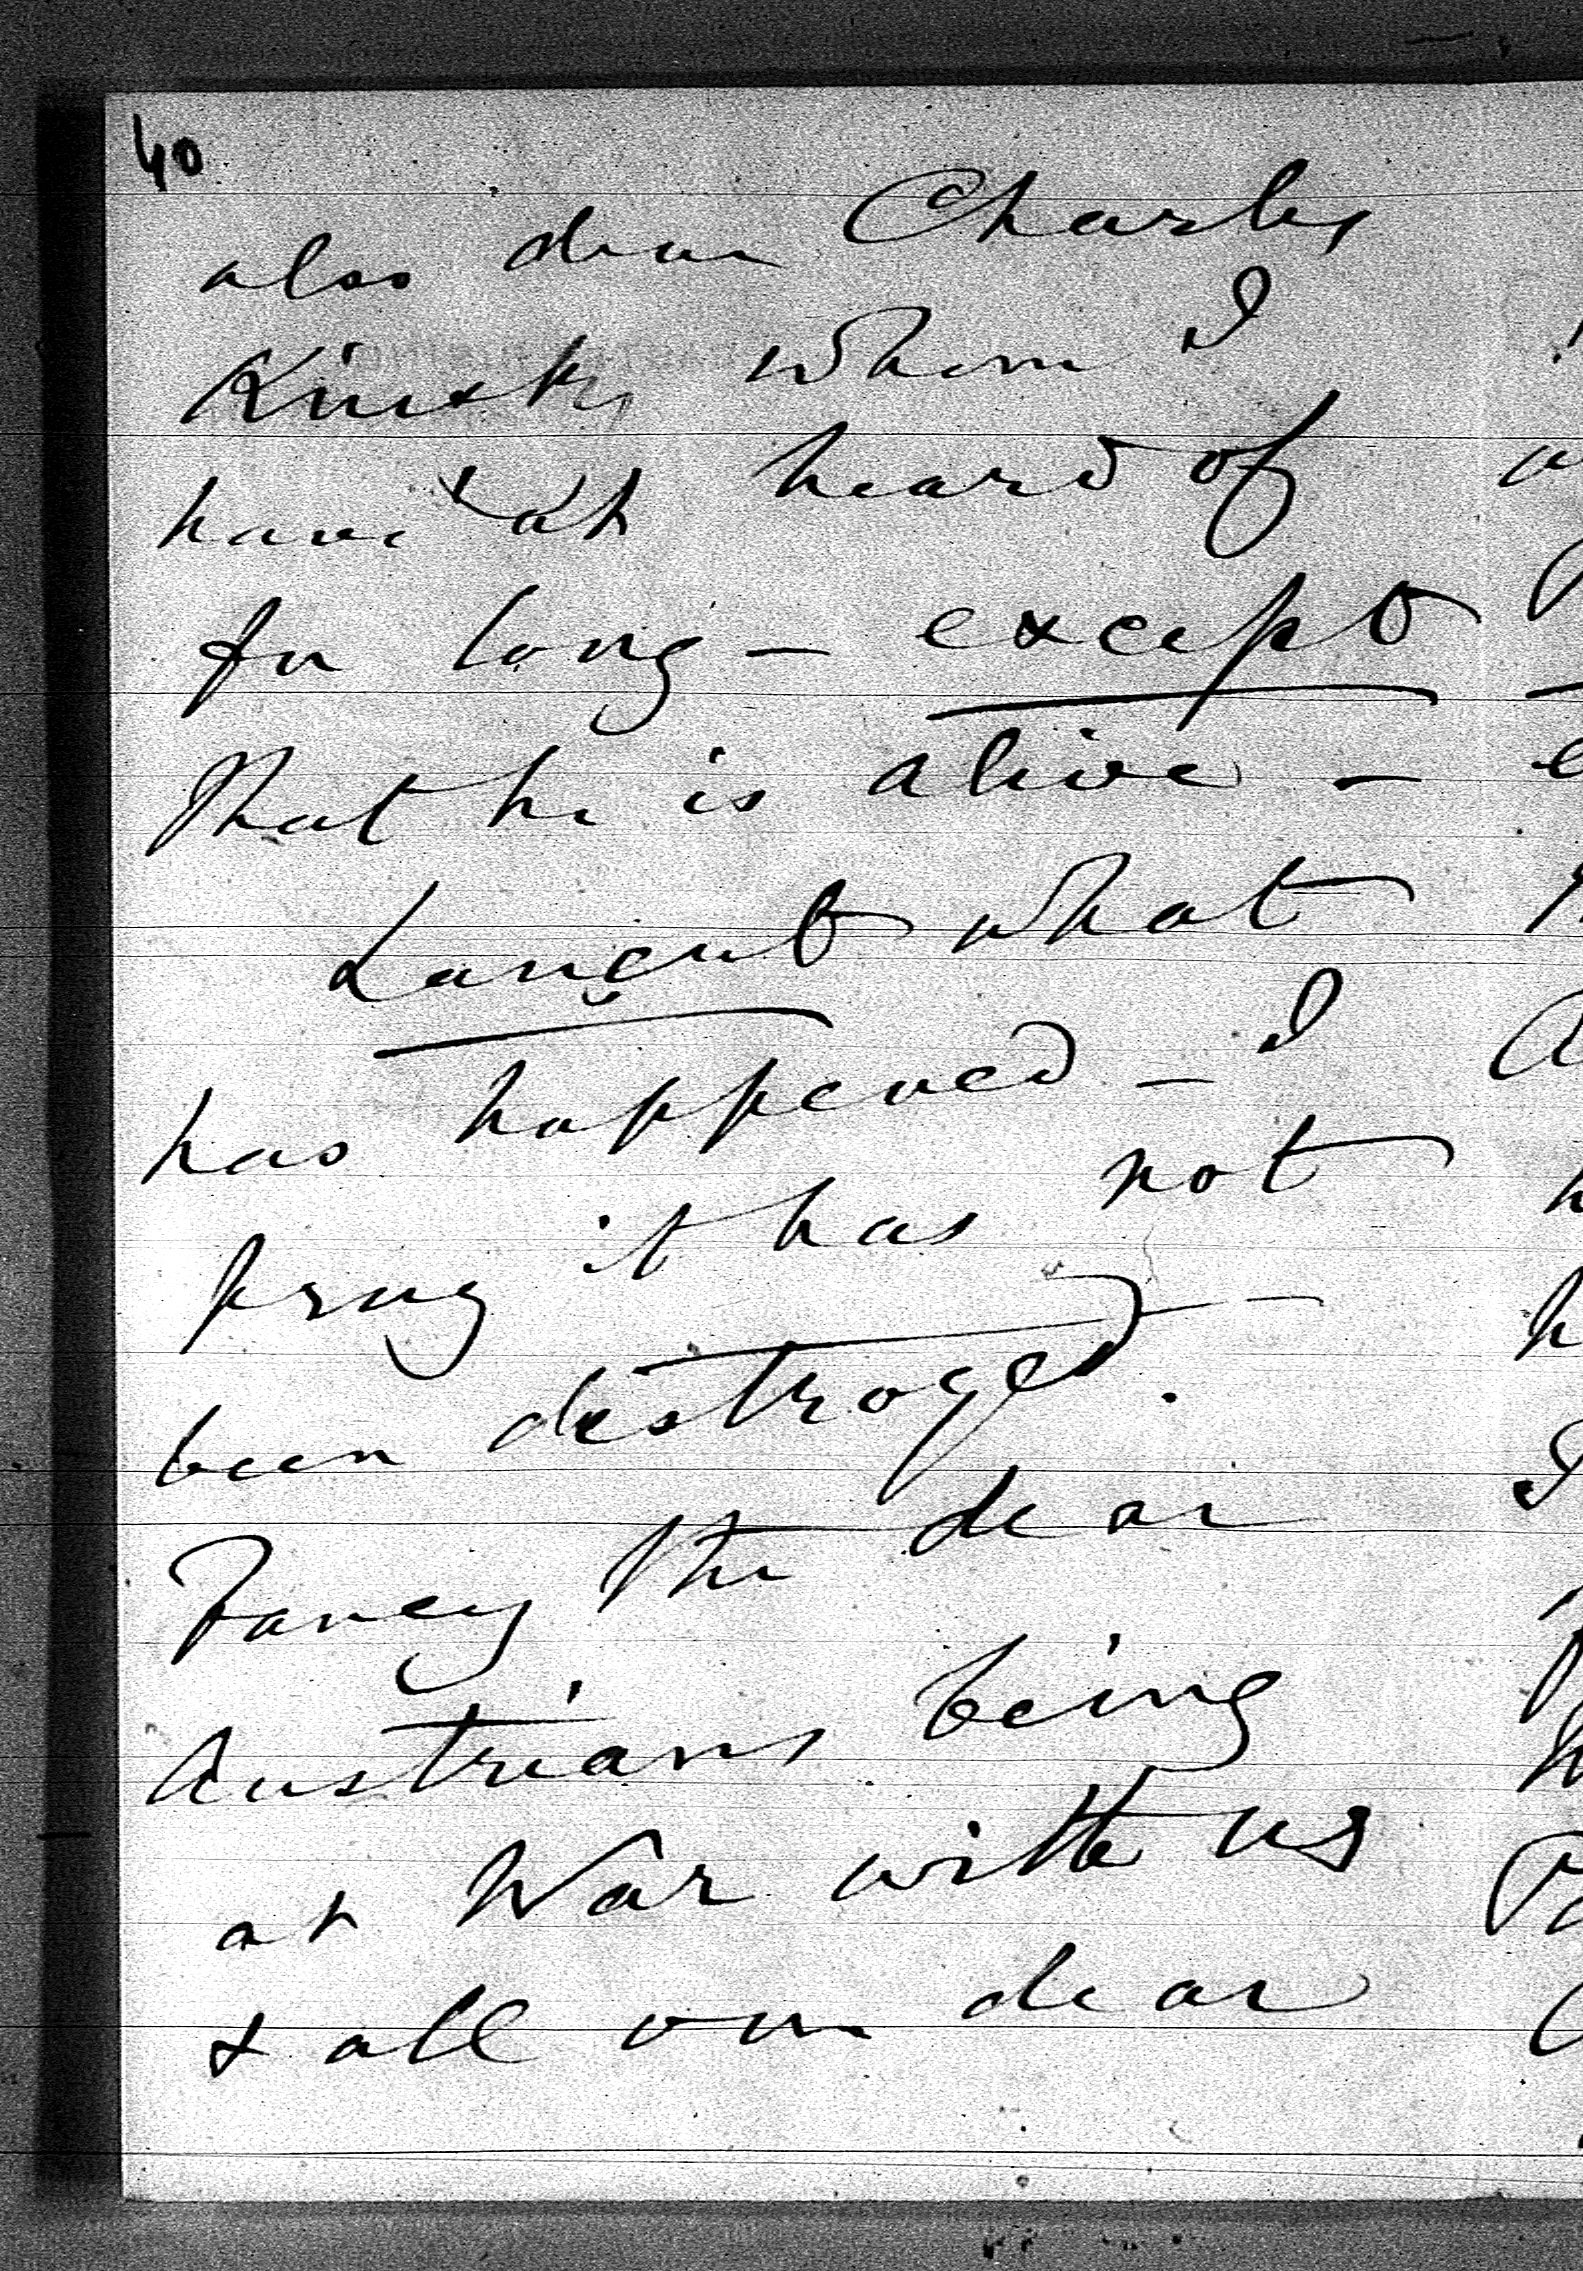 40
also dear Charles
Kinsky whom I
have not heard of
for long — except
that he is alive —
Lancut what
has happened — I
pray it has not
been destroyed.
Fancy the dear
Austrians being
at War with us
& all our dear